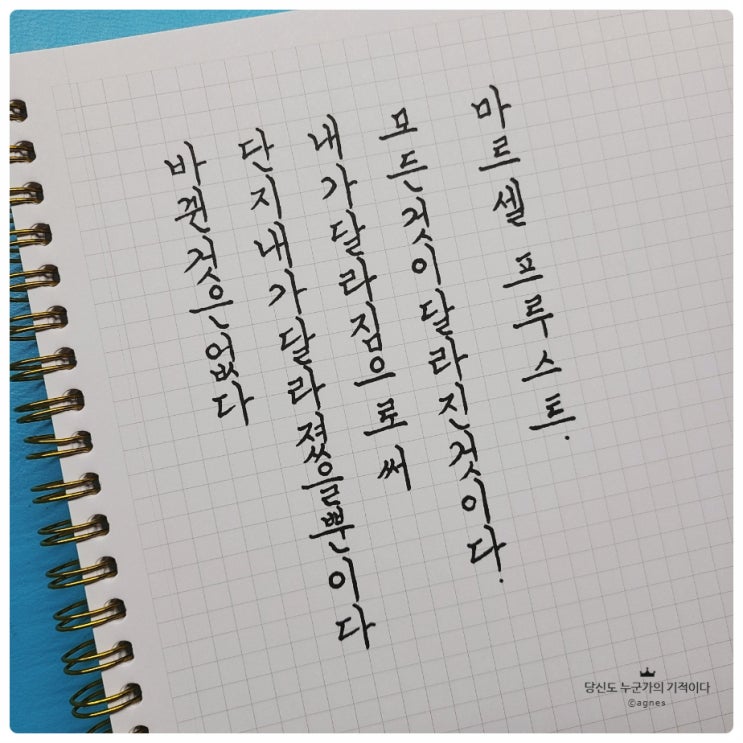 바뀐것은없다
단지내가달라졌을뿐이다
내가달라짐으로써
모든것이달라진것이다.
마르셀 프루스트.
당신도 누군가의 기적이다
©agnes